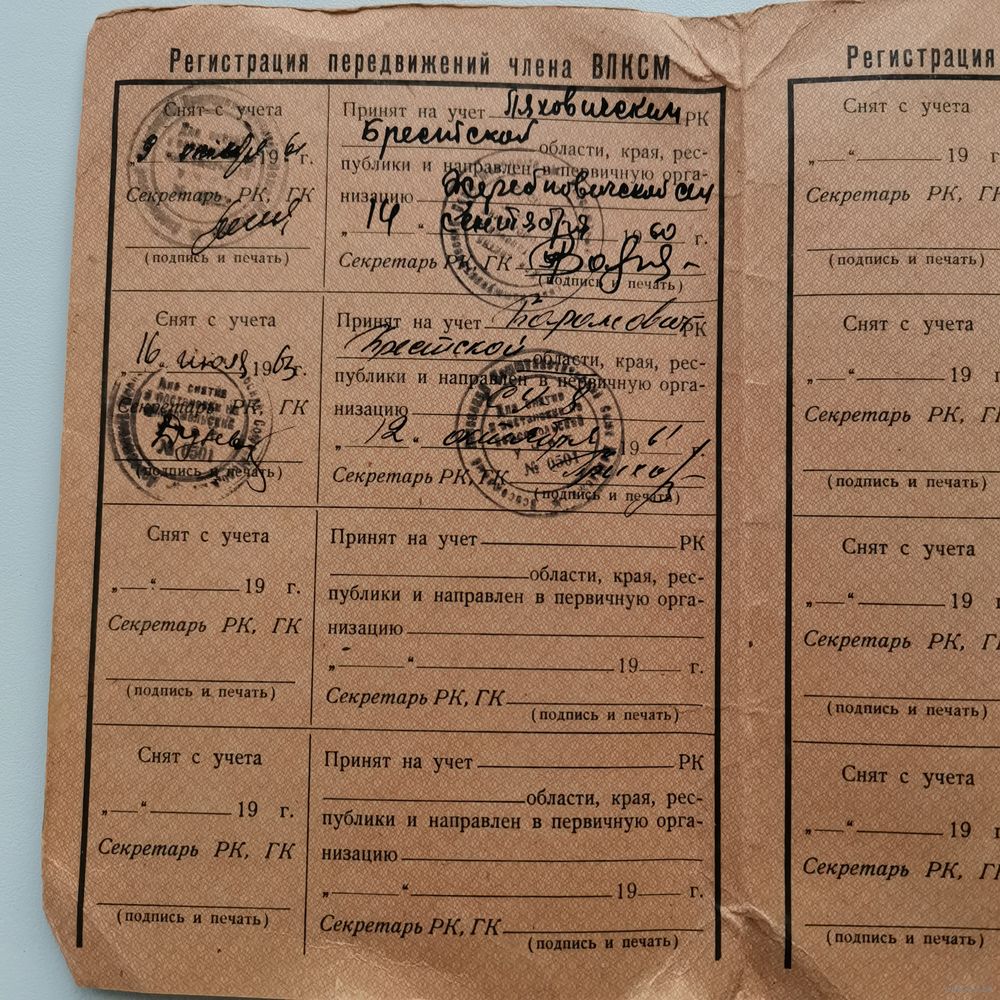 Регистрация передвижений члена ВЛКСМ
Снят с учета
„ 9 “ октября 1961 г.
Секретарь РК, ГК
(подпись и печать)
Принят на учет Ляховичским РК
Брестской области, края, рес-
публики и направлен в первичную орга-
низацию
„ 14 “ сентября 1960 г.
Секретарь РК, ГК
(подпись и печать)
Снят с учета
16 июля 1963 г.
Секретарь РК, ГК
(подпись и печать)
Для снятия
и постановки на
комсомольский
№ 0501
Принят на учет РК
Брестской области, края, рес-
публики и направлен в первичную орга-
низацию
„ 12. октября 1961 г.
Секретарь РК, ГК
(подпись и печать)
Для снятия
и постановки на
№ 0501
Снят с учета
„ “ 19 г.
Секретарь РК, ГК
(подпись и печать)
Принят на учет РК
области, края, рес-
публики и направлен в первичную орга-
низацию
„ “ 19 г.
Секретарь РК, ГК
(подпись и печать)
Снят с учета
„ “ 19 г.
Секретарь РК, ГК
(подпись и печать)
Принят на учет РК
области, края, рес-
публики и направлен в первичную орга-
низацию
„ “ 19 г.
Секретарь РК, ГК
(подпись и печать)
Регистрация
Снят с учета
„ “ 19 г
Секретарь РК, ГК
(подпись и печать)
Снят с учета
„ “ 19 г
Секретарь РК, ГК
(подпись и печать)
Снят с учета
„ “ 19 г
Секретарь РК, ГК
(подпись и печать)
Снят с учета
„ “ 19 г
Секретарь РК, ГК
(подпись и печать)